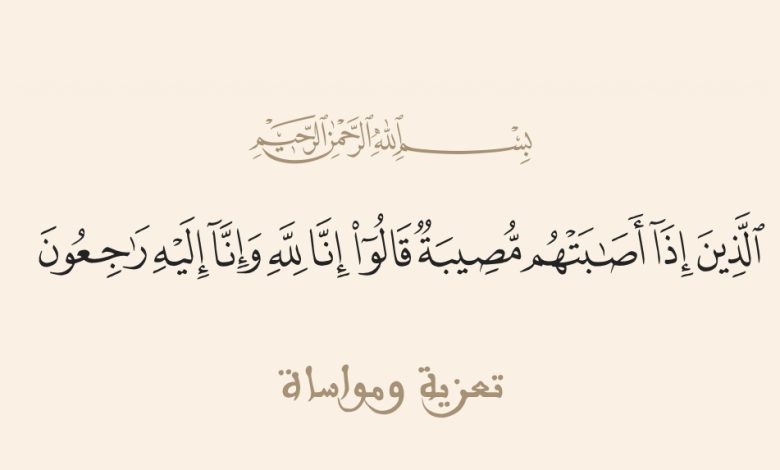 بِسْمِ اللهِ الرَّحْمٰنِ الرَّحِيْمِ
ٱلَّذِينَ إِذَآ أَصَـٰبَتْهُم مُّصِيبَةٌ قَالُوٓا۟ إِنَّا لِلَّهِ وَإِنَّآ إِلَيْهِ رَٰجِعُونَ
تعزية ومواساة